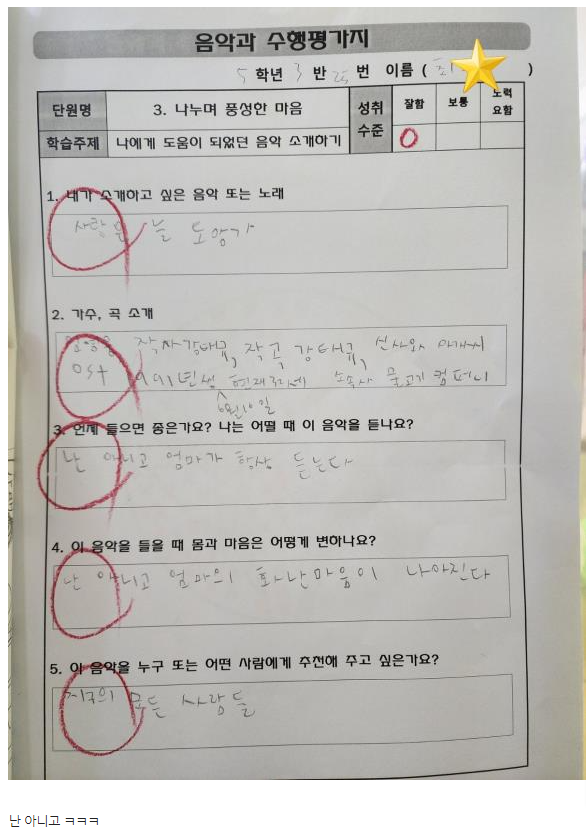 음악과 수행평가지
5 학년 3 반 번 이름 ( )
단원명 3. 나누며 풍성한 마음 성취 수준 잘함 보통 노력 요함
학습주제 나에게 도움이 되었던 음악 소개하기
1. 내가 소개하고 싶은 음악 또는 노래
사랑은 늘 도망가
2. 가수, 곡 소개
임영웅 작사 강태규, 작곡 강태규, 신사와 아가씨
OST 1991년생 현재 소속사 물고기 컴퍼니
6월 16일
3. 언제 들으면 좋은가요? 나는 어떨 때 이 음악을 듣나요?
난 아니고 엄마가 항상 듣는다
4. 이 음악을 들을 때 몸과 마음은 어떻게 변하나요?
난 아니고 엄마의 화난마음이 나아진다
5. 이 음악을 누구 또는 어떤 사람에게 추천해 주고 싶은가요?
지구의 모든 사람들
난 아니고 ㅋㅋㅋ